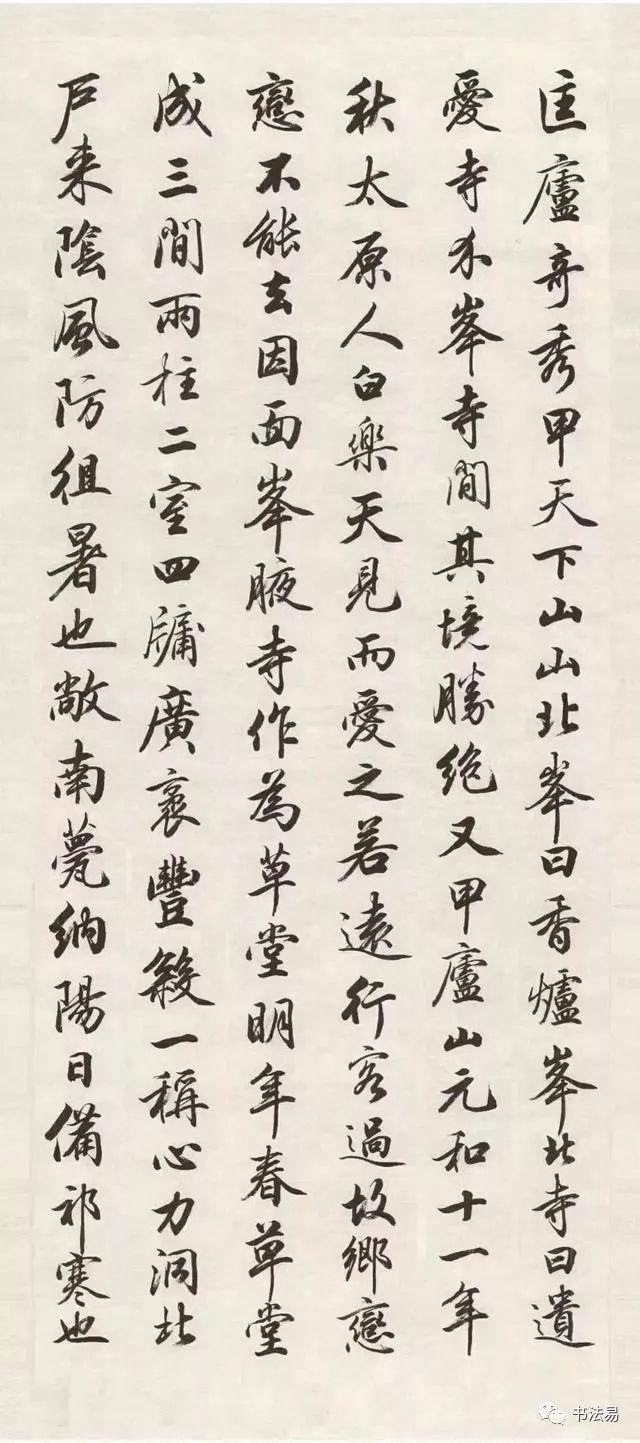 匡廬奇秀甲天下山山北峯曰香爐峯北寺曰遺
愛寺介峯寺間其境勝絶又甲廬山元和十一年
秋太原人白樂天見而愛之若遠行客過故鄉戀
戀不能去因面峯腋寺作為草堂明年春草堂
成三間兩柱二室四牖廣袤豐殺一稱心力洞北
戶来陰風防徂暑也敞南甍納陽日備祁寒也
书法易